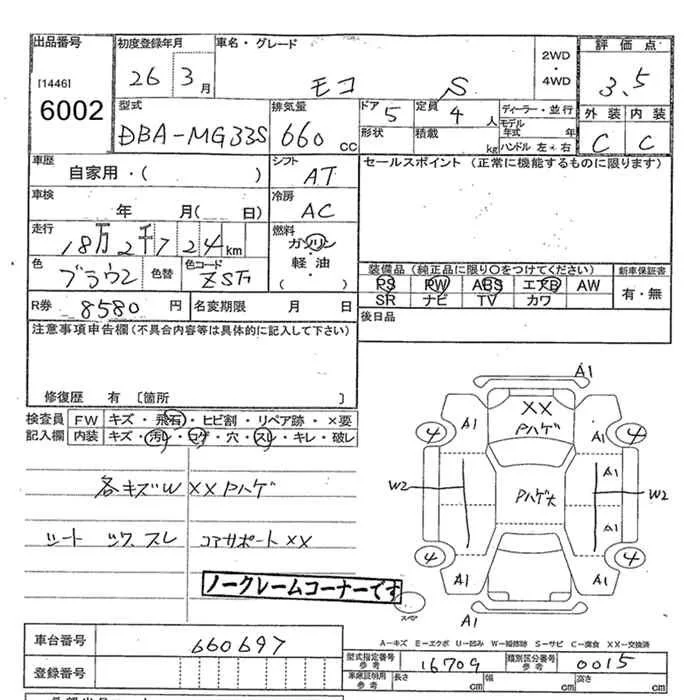 出品番号 初度登録年月 車名・グレード 2WD・4WD 評価点
[1446] 6002 26 3月 モコ S 3.5
外装 内装
C C
型式 排気量 ドア 5 定員 4人 ディーラー・並行
DBA-MG33S 660cc 形状 積載 kg モデル年式 年
ハンドル 左・右
車歴 自家用・( ) シフト AT セールスポイント (正常に機能するものに限ります)
車検 年 月( 日) 冷房 AC
走行 18万2千724km 燃料 ガソリン・軽油・( )
色 ブラウン 色替 色コード ZSF
装備品 (純正品に限り○をつけてください) 新車保証書
PS PW ABS エアB AW 有・無
SR ナビ TV カワ
R券 8580円 名変期限 月 日 後日品
注意事項申告欄(不具合内容等は具体的に記入して下さい)
修復歴 有 [箇所 ]
検査員記入欄 FW キズ・飛石・ヒビ割・リペア跡・×要
内装 キズ・汚レ・コゲ・穴・スレ・キレ・破レ
各キズW XXPハゲ
シート スレ コアサポートXX
ノークレームコーナーです
A1
XX
Pハゲ
A1 A1
4 4
A1
W2 Pハゲ大 W2
A1
4 4
A1 A1
A1
スペア
A-キズ E-エクボ U-凹み W-補修跡 S-サビ C-腐食 XX-交換済
車台番号 660697
型式指定番号 参考 16709 類別区分番号 参考 0015
登録番号
車庫証明用 参考 長さ cm 幅 cm 高さ cm